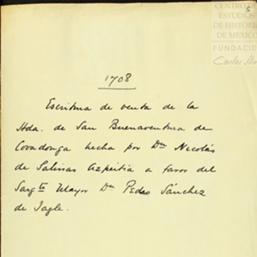 5
CENTRO DE
ESTUDIOS
DE HISTORIA
DE MÉXICO
FUNDACIÓN
Carlos Slim
1708
Escritura de venta de la
Hda. de San Buenaventura de
Covadonga hecha por Dn Nicolás
de Salinas Azpeitia a favor del
Sargto Mayor Dn Pedro Sánchez
de Tagle.